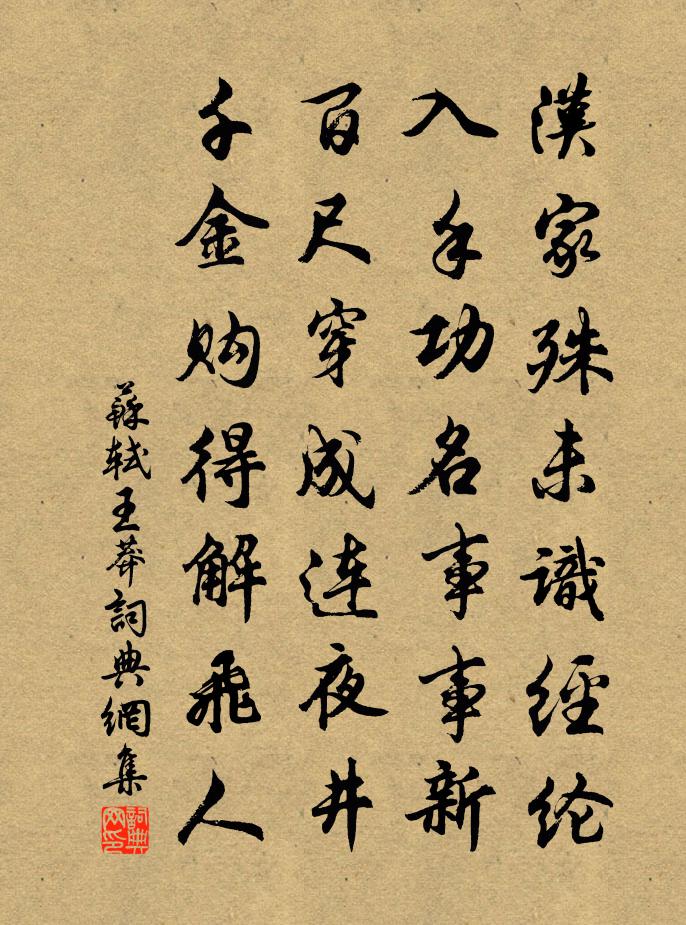 漢家殊未識經纶
入手功名事事新
百尺穿成連夜井
千金购得解飛人
蘇軾王莽詞典網集
詞典网印